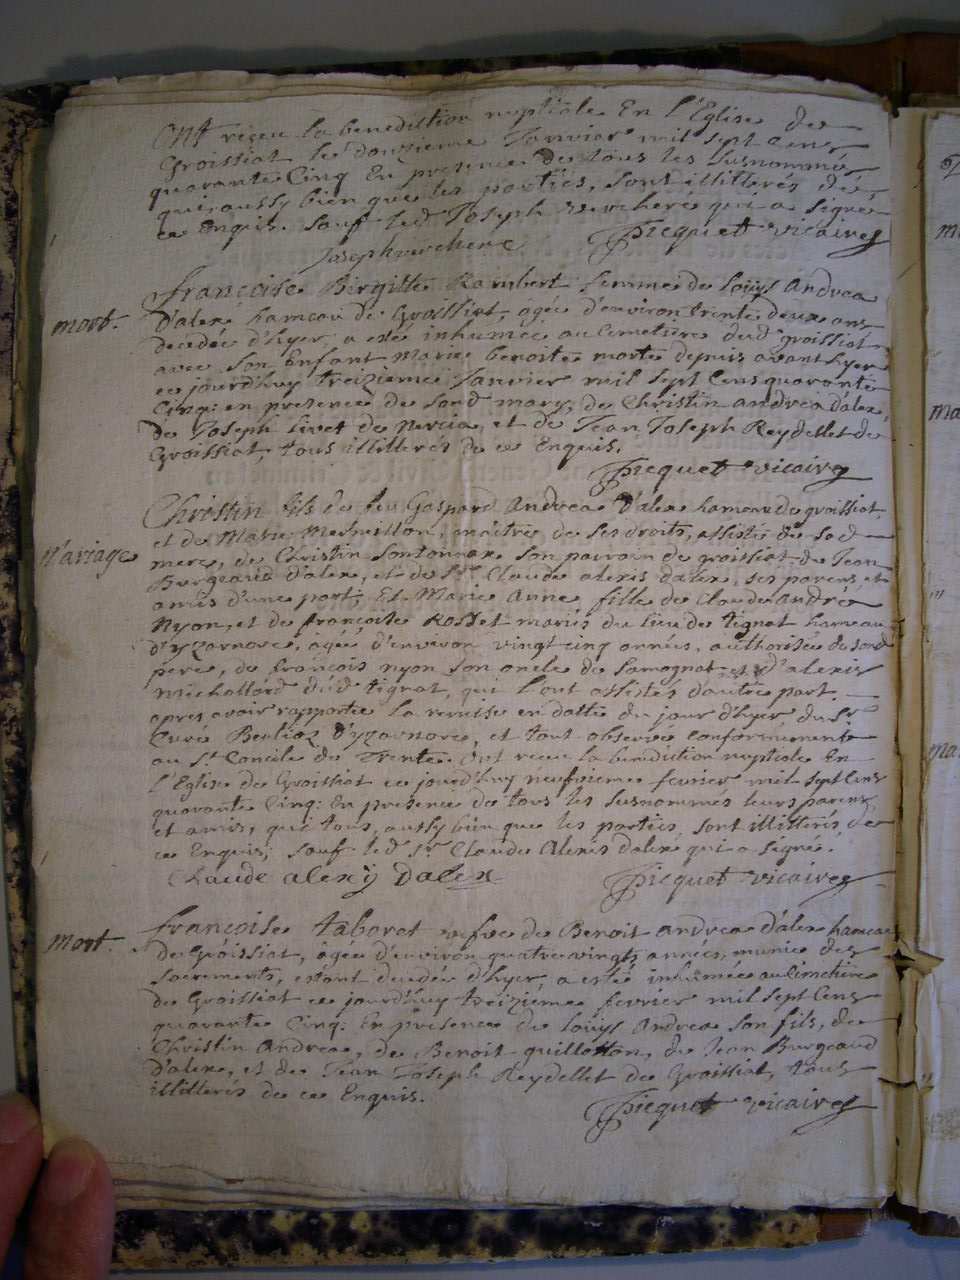 ont reçeu la benediction nuptiale En l'Eglise de
Groissiat le douzieme Janvier mil sept Cens
quarante Cinq En presence de tous les susnommé
qui aussy bien que les parties, sont illitterés de
ce Enquis. sauf led Joseph verchere qui a signé
Joseph verchere Picquet vicaire
mort. françoise Birgitte Rambert femme de Louys Andrea
D'alex hameau de Groissiat, agée d'environ trente deux ans
decedée d'hyer, a eté inhumée au Cemetiere dud groissiat
avec son Enfant Marie benoite morte depuis avant hyer
ce jourdhuy treizieme Janvier mil sept Cens quarante
Cinq: en presence de sond mary, de Christin andrea d'alex,
de Joseph livet de et de Jean Joseph Reydellet de
Groissiat, tous illitterés de ce Enquis.
Picquet vicaire
Mariage Christin fils de feu Gaspard Andrea D'alex hameau de groissiat,
et de Marie maitre de ses droits, assisté de sad
mere, de Christin sontonnax son parrain de groissiat de Jean
Burgeaud d'alex, et de Sr. Claude alexis dalex, ses parens et
amis d'une part; Et Marie Anne fille de Claude André
Nyon, et de françoise Rostet mariés du lieu de Tignat hameau
D'yzarnore, agée d'environ vingt cinq années, authorisée de sond
pere, de françois nyon son oncle de Samognat et d'alexis
michallard dud tignat, qui l'ont assistés d'autre part.
apres avoir rapportée la remise en datte du jour d'hyer du Sr
Curé Berlioz D'yzarnore, et tout observée conformement
au St. Concile de Trente. Ont receu la benediction nuptiale En
l'Eglise de Groissiat ce jourdhuy neufvieme fevrier mil sept Cens
quarante Cinq: En presence de tous les susnommes leurs parens
et amis, qui tous, aussy bien que les parties, sont illitterés de
ce Enquis, sauf led. sr. Claude Alexis Dalex qui a signé.
Claude alexy Dalex Picquet vicaire
Mort. françoise taboret vefve de Benoit Andrea d'alex hameau
de Groissiat, agée d'environ quatre vingts années, munie des
sacrements, estant decedée d'hyer, a esté inhumée au Cimetiere
de Groissiat ce jourdhuy treizieme fevrier mil sept Cens
quarante Cinq: En presence de Louys Andrea son fils, de
Christin Andrea, de Benoit guillotton, de Jean Burgeaud
D'alex, et de Jean Joseph Reydellet de Groissiat, tous
illitterés de ce Enquis.
Picquet vicaire